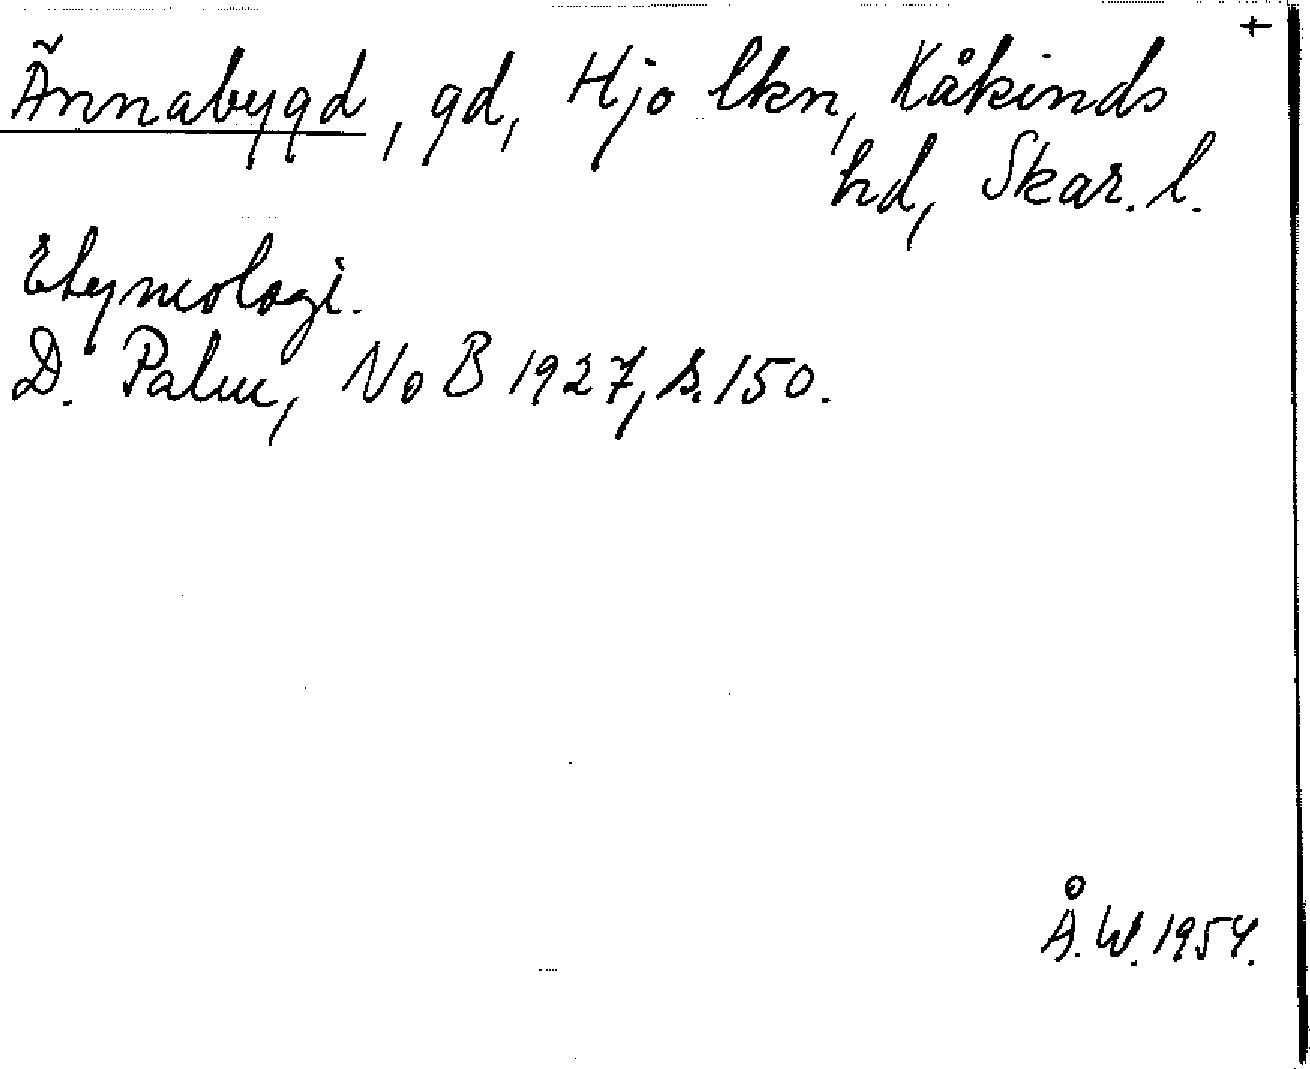 +
Ännabygd, gd, Hjo lkn, Kåkinds
hd, Skar. l.
Etymologi.
D. Palm, NoB 1927, s. 150.
Å.W. 1954.